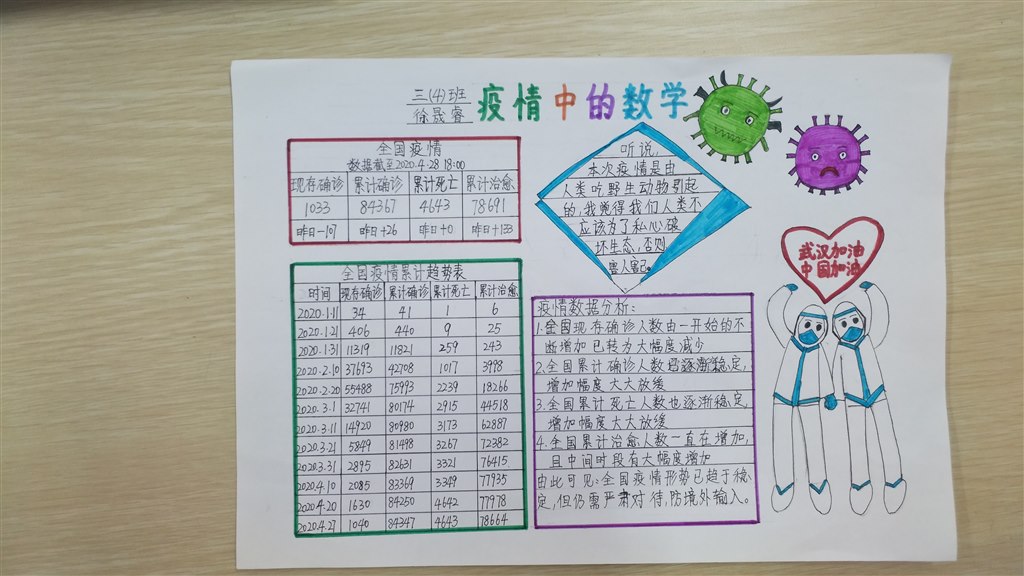 三(4)班
徐晟睿
疫情中的数学
全国疫情
数据截至2020.4.28 18:00
现存确诊 累计确诊 累计死亡 累计治愈
1033 84367 4643 78691
昨日-107 昨日+26 昨日+0 昨日+133
听说,
本次疫情是由
人类吃野生动物引起
的,我觉得我们人类不
应该为了私心破
坏生态,否则
害人害己。
武汉加油
中国加油
全国疫情累计趋势表
时间 现存确诊 累计确诊 累计死亡 累计治愈
2020.1.11 34 41 1 6
2020.1.21 406 440 9 25
2020.1.31 11319 11821 259 243
2020.2.10 37693 42708 1017 3998
2020.2.20 55488 75993 2239 18266
2020.3.1 32741 80174 2915 44518
2020.3.11 14920 80980 3173 62887
2020.3.21 5849 81498 3267 72382
2020.3.31 2895 82631 3321 76415
2020.4.10 2085 83369 3349 77935
2020.4.20 1630 84250 4642 77978
2020.4.27 1040 84347 4643 78664
疫情数据分析:
1.全国现存确诊人数由一开始的不
断增加已转为大幅度减少
2.全国累计确诊人数已逐渐稳定,
增加幅度大大放缓
3.全国累计死亡人数也逐渐稳定,
增加幅度大大放缓
4.全国累计治愈人数一直在增加,
且中间时段有大幅度增加
由此可见:全国疫情形势已趋于稳
定,但仍需严肃对待,防境外输入。